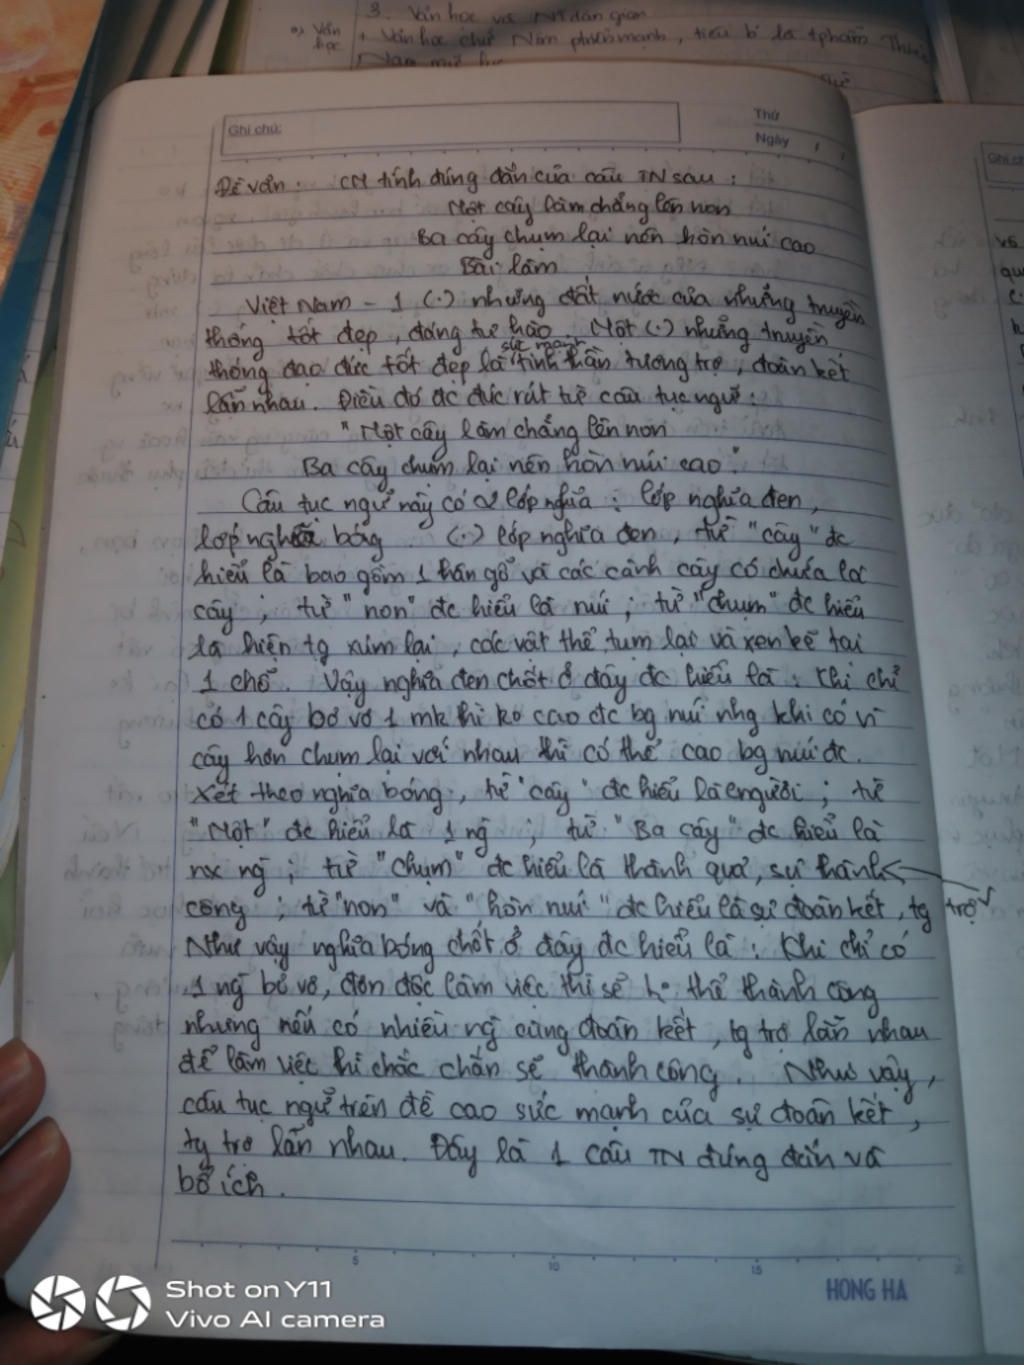 3. Văn học và NT dân gian
a) Văn học
+ Văn học chữ Nôm phát mạnh, tiêu bỉ là tphẩm
Ghi chú:
Thứ
Ngày
Đề văn: CM tính đúng đắn của câu TN sau:
Một cây làm chẳng lên non
Ba cây chụm lại nên hòn núi cao
Bài làm
Việt Nam - 1 (.) những đất nước của những truyền
thống tốt đẹp, đáng tự hào. Một (.) những truyền
sức mạnh
thống đạo đức tốt đẹp là tinh thần tương trợ, đoàn kết
lẫn nhau. Điều đó đc đúc rút từ câu tục ngữ:
"Một cây làm chẳng lên non
Ba cây chụm lại nên hòn núi cao".
Câu tục ngữ này có 2 lớp nghĩa: lớp nghĩa đen,
lớp nghĩa bóng. (.) lớp nghĩa đen, từ "cây" đc
hiểu là bao gồm 1 thân gỗ và các cành cây có chứa lá
cây; từ "non" đc hiểu là núi; từ "chụm" đc hiểu
là hiện tg xúm lại, các vật thể tụm lại và xen kẽ tại
1 chỗ. Vậy nghĩa đen chốt ở đây đc hiểu là: Khi chỉ
có 1 cây bơ vơ 1 mk thì ko cao đc bg núi nhg khi có
cây hơn chụm lại với nhau thì có thể cao bg núi đc.
Xét theo nghĩa bóng, từ "cây" đc hiểu là người; từ
"Một" đc hiểu là 1 ng; từ "Ba cây" đc hiểu là
nx ng; từ "chụm" đc hiểu là thành quả, sự thành
công; từ "non" và "hòn núi" đc hiểu là sự đoàn kết, tg trợ
Như vậy nghĩa bóng chốt ở đây đc hiểu là: Khi chỉ có
1 ng bơ vơ, đơn độc làm việc thì sẽ ko thể thành công
nhưng nếu có nhiều ng cùng đoàn kết, tg trợ lẫn nhau
để làm việc thì chắc chắn sẽ thành công. Như vậy,
câu tục ngữ trên đề cao sức mạnh của sự đoàn kết,
tg trợ lẫn nhau. Đây là 1 câu TN đúng đắn và
bổ ích.
5 10 15
HONG HA
Shot on Y11
Vivo AI camera